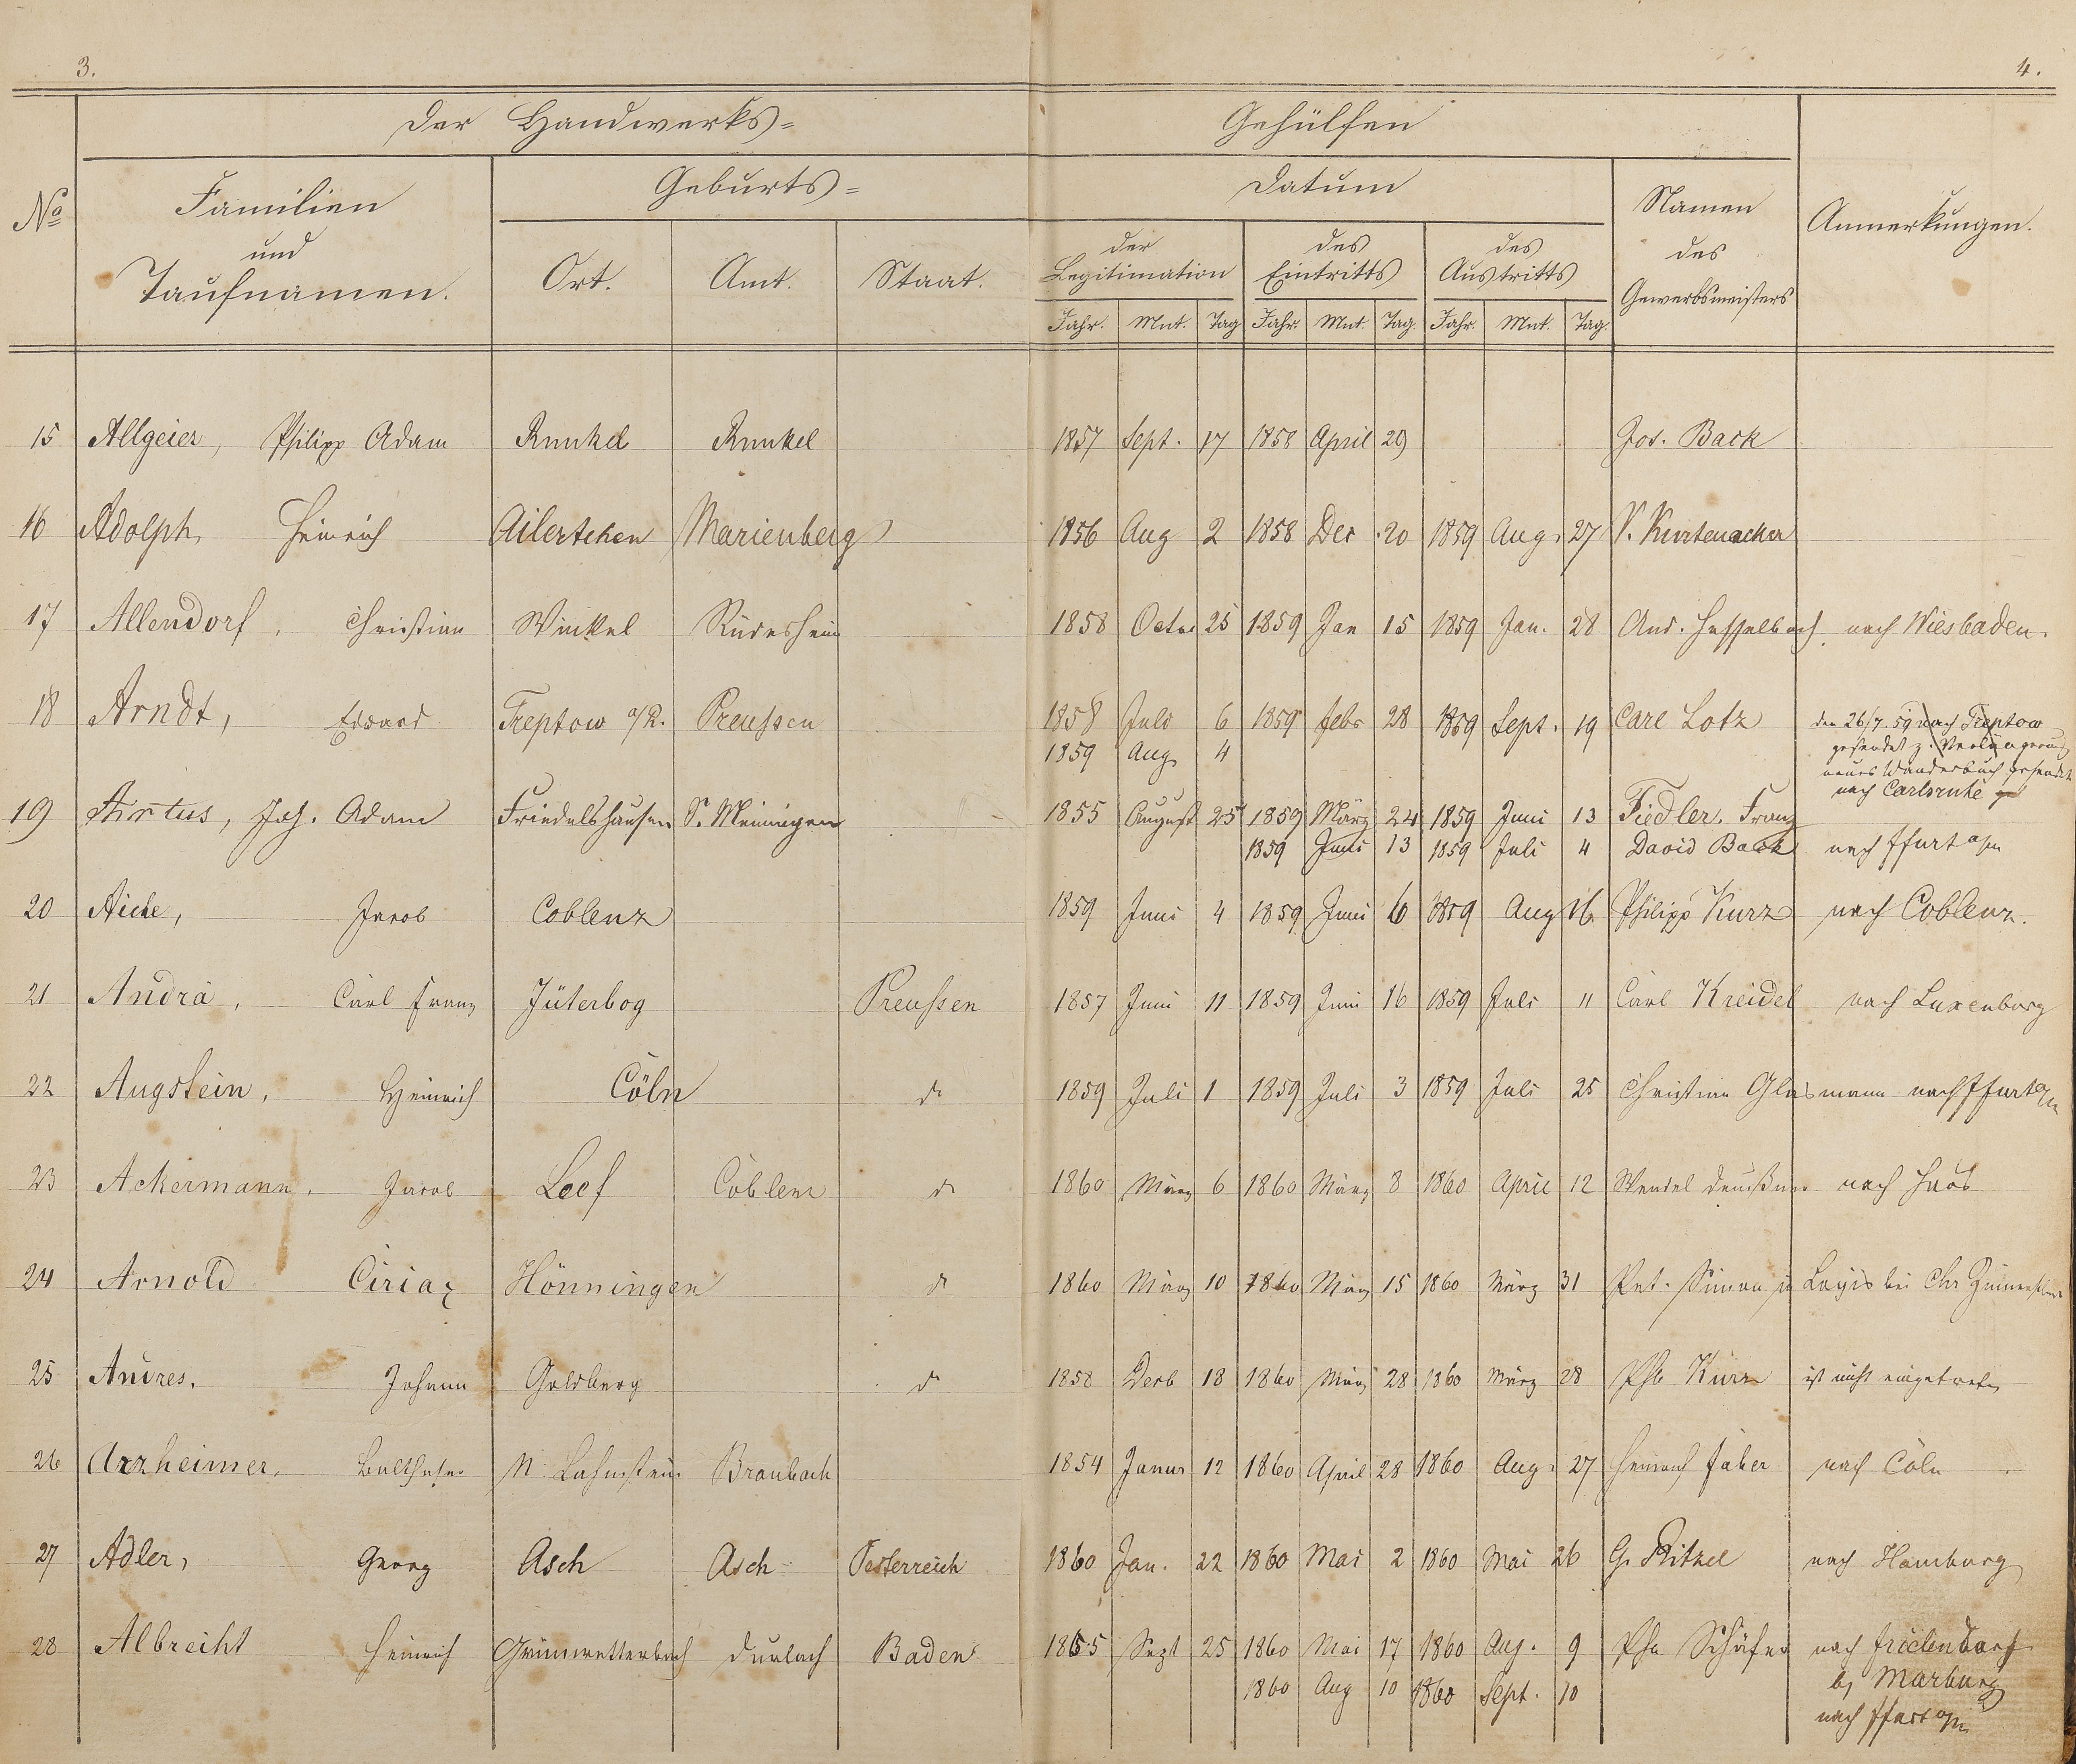 3.
4.
Der Handwerks= Gehülfen
No
Familien
und
Taufnamen.
Geburts=
Ort. Amt. Staat.
Datum
der
Legitimation
des
Eintritts
des
Austritts
Jahr. Mnt. Tag Jahr. Mnt. Tag. Jahr. Mnt. Tag.
Namen
des
Gewerbsmeisters
Anmerkungen.
15 Allgeier, Philipp Adam Runkel Runkel 1857 Sept. 17 1858 April 29 Jos. Back
16 Adolph, Heinrich Ailertchen Marienberg 1856 Aug 2 1858 Dec. 20 1859 Aug. 27 V. Kurtenacker
17 Allendorf, Christian Winkel Rüdesheim 1858 Octor 25 1859 Jan 15 1859 Jan. 28 And. Hesselbach nach Wiesbaden.
18 Arndt, Edward Treptow a/R. Preußen 1858 Juli 6 1859 febr 28 1859 Sept. 19 Carl Lotz den 26/7. 59 nach Treptow
1859 Aug 4 gesendet z. Verlängerung
neues Wanderbuch gesendet
nach Carlsruhe
19 Airtus, Joh. Adam Friedelshausen S. Meiningen 1855 August 25 1859 März 24 1859 Juni 13 Fiedler, Franz
1859 Juni 13 1859 Juli 4 David Back nach Ffurt a/m
20 Aiche, Jacob Coblenz 1859 Juni 4 1859 Juni 6 1859 Aug 16. Philipp Kurz nach Coblenz.
21 Andrä, Carl Franz Jüterbog Preußen 1857 Juni 11 1859 Juni 16 1859 Juli 11 Carl Kreidel nach Luxenburg
22 Augstein, Heinrich Cöln do 1859 Juli 1 1859 Juli 3 1859 Juli 25 Christian Glasmann nach Ffurt a/m
23 Ackermann, Jacob Leef Coblenz do 1860 März 6 1860 März 8 1860 April 12 Wendel nach Haus
24 Arnold Ciriaz Hönningen do 1860 März 10 1860 März 15 1860 März 31 Pet. Simon jr Logis bei Chr
25 Andres, Johann Goldberg do 1858 Decb 18 1860 März 28 1860 März 28 Phil Kurz ist nicht eingetreten
26 Arzheimer, Balthasar N. Lahnstein Braubach 1854 Januar 12 1860 April 28 1860 Aug. 27 Heinrich Faber nach Cöln
27 Adler, Georg Asch Asch Oesterreich 1860 Jan. 22 1860 Mai 2 1860 Mai 26 G. Ritzel nach Hamburg
28 Albrecht Heinrich Grünwettersbach Durlach Baden 1855 Sept 25 1860 Mai 17 1860 Aug. 9 Ph. Schäfer nach Frielendorf
1860 Aug 10 1860 Sept. 10 bj Marburg
nach Ffurt a/m